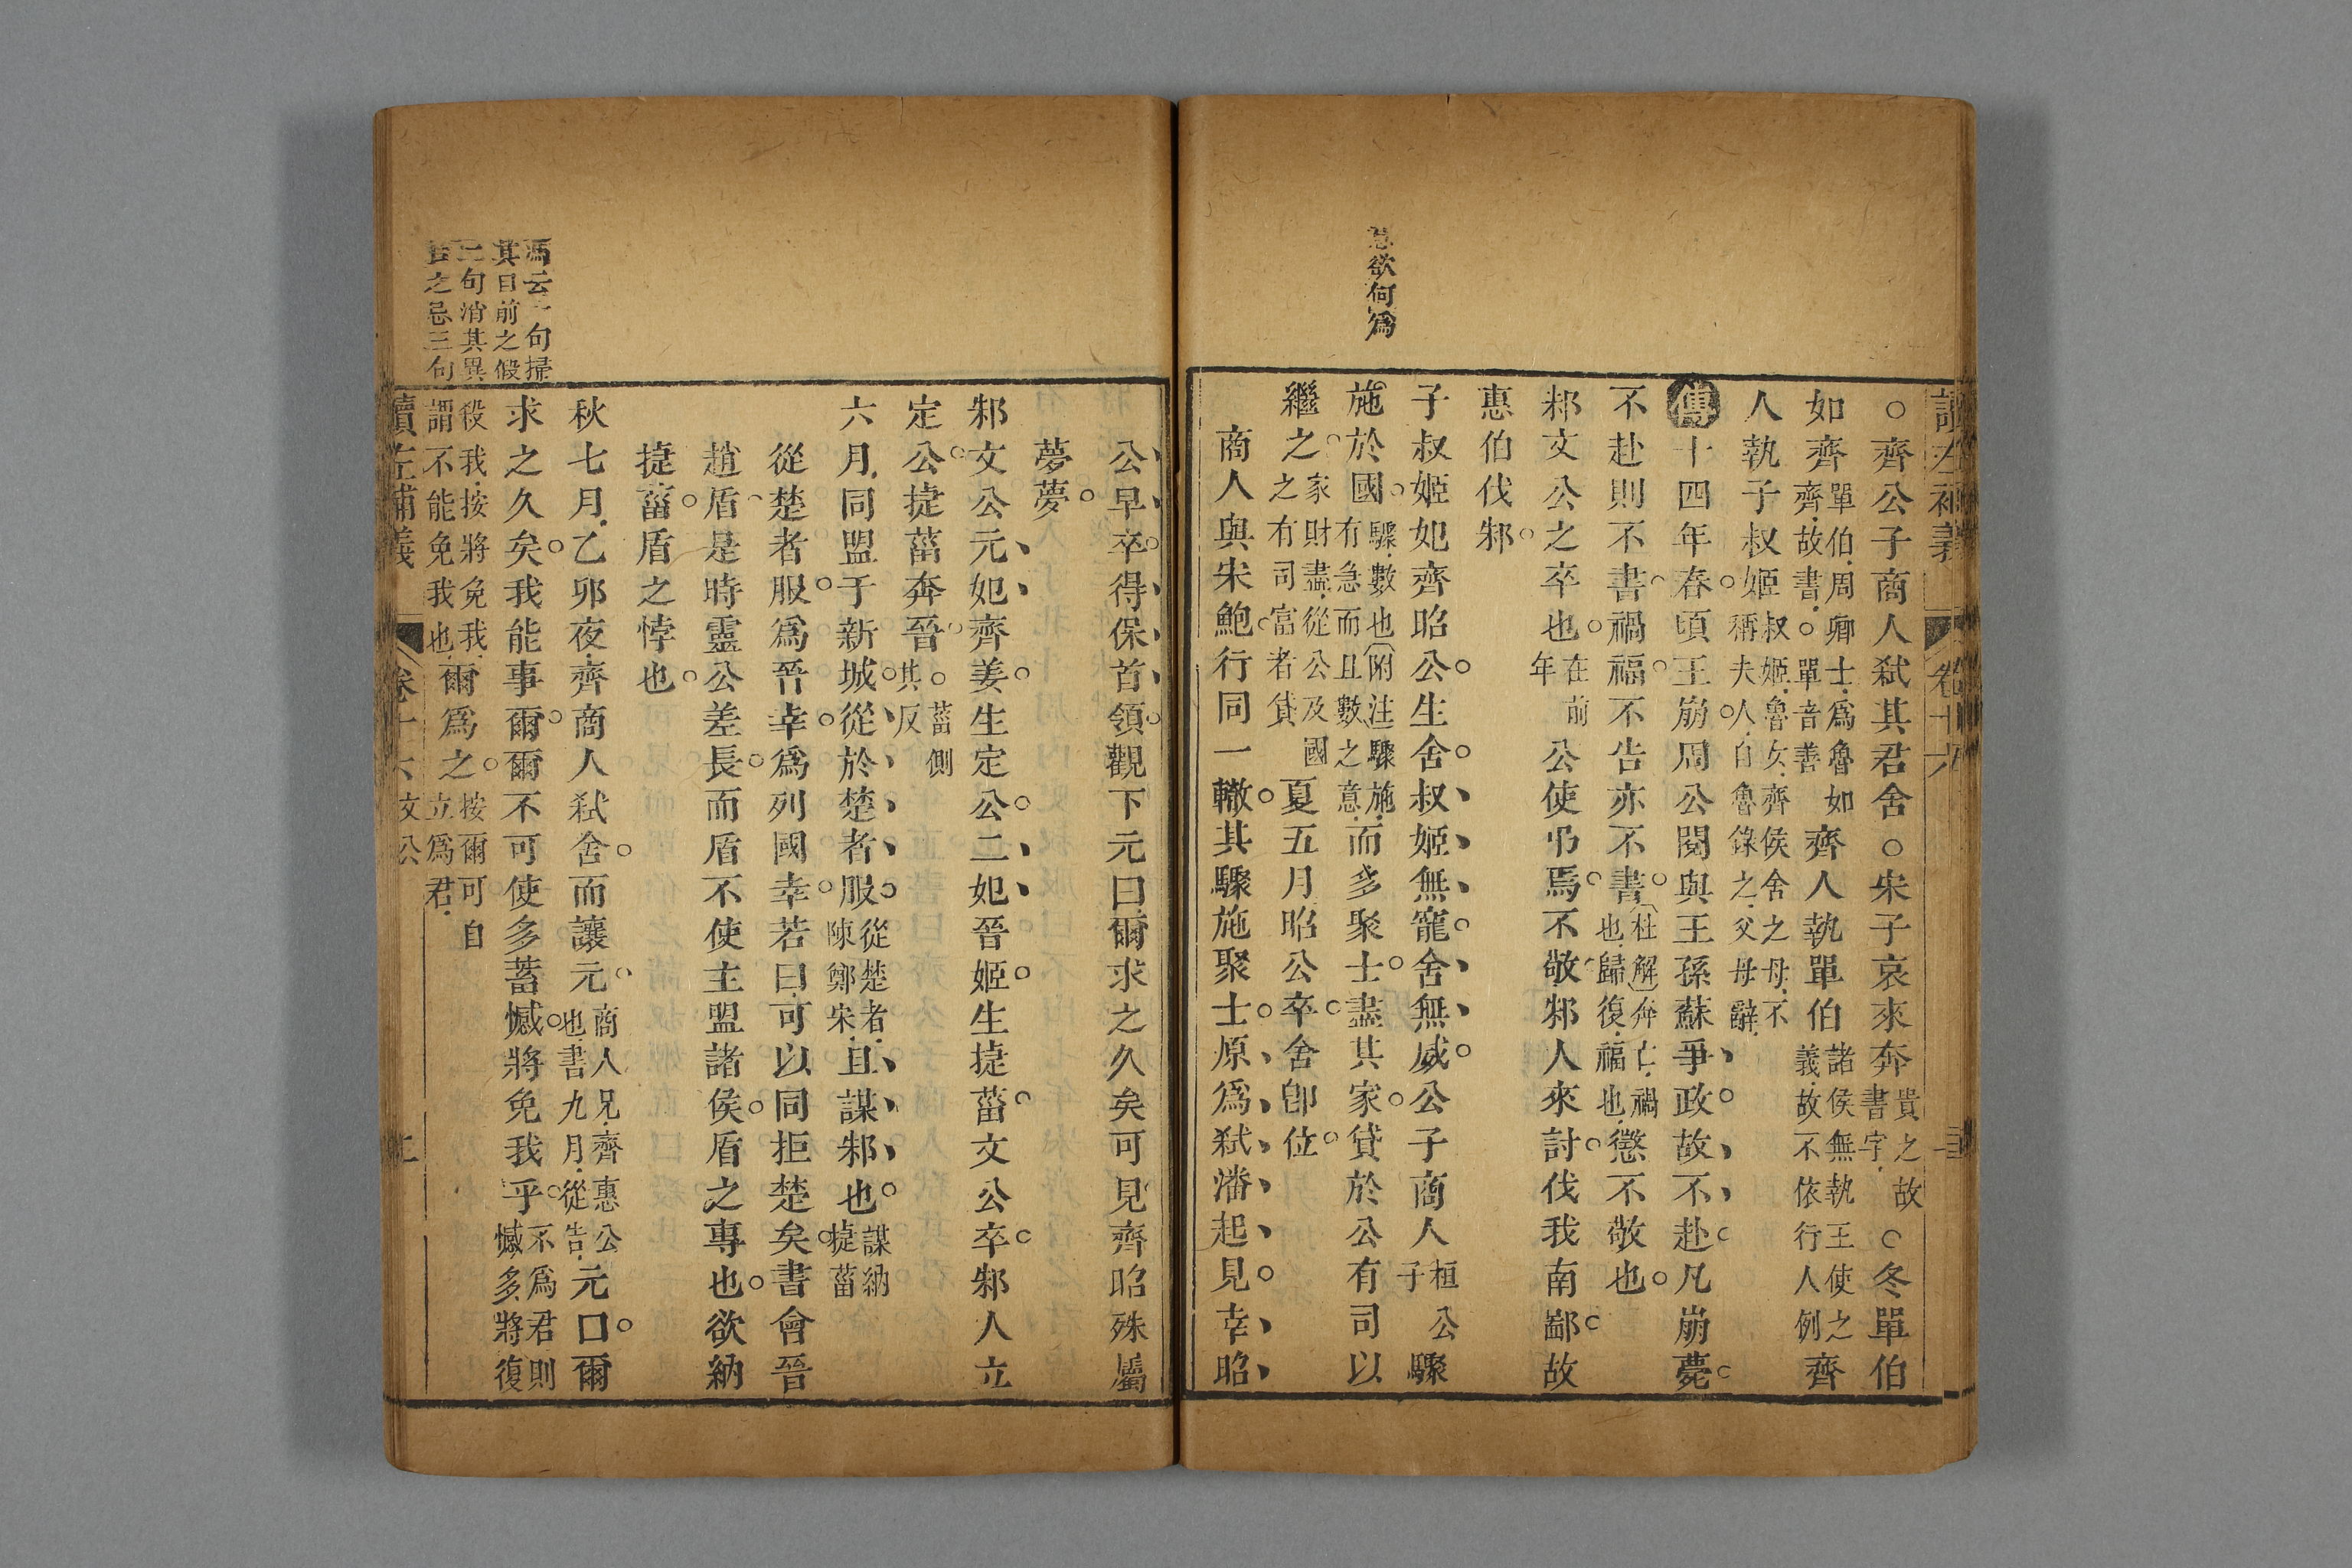 讀左補義 卷十六
意欲何爲
○齊公子商人弑其君舍○宋子哀來奔貴之故書字○冬單伯
如齊單伯周卿士爲魯如齊故書○單音善齊人執單伯諸侯無執王使之義故不依行人例齊
人執子叔姬叔姬魯女齊侯舍之母不稱夫人自魯錄之父母辭
傳十四年春頃王崩周公閱與王孫蘇爭政故不赴凡崩薨
不赴則不書禍福不告亦不書杜解奔亡禍也歸復福也懲不敬也
邾文公之卒也在前年公使弔焉不敬邾人來討伐我南鄙故
惠伯伐邾
子叔姬妃齊昭公生舍叔姬無寵舍無威公子商人桓公子驟
施於國驟數也附注驟施有急而且數之意而多聚士盡其家貸於公有司以
繼之家財盡從公及國之有司富者貸夏五月昭公卒舍卽位
商人與宋鮑行同一轍其驟施聚士原爲弑潘起見幸昭
公早卒得保首領觀下元曰爾求之久矣可見齊昭殊屬
夢夢
邾文公元妃齊姜生定公二妃晉姬生捷菑文公卒邾人立
定公捷菑奔晉○菑側其反
六月同盟于新城從於楚者服從楚者陳鄭宋且謀邾也謀納捷菑
從楚者服爲晉幸爲列國幸若曰可以同拒楚矣書會晉
趙盾是時靈公差長而盾不使主盟諸侯盾之專也欲納
捷菑盾之悖也
秋七月乙卯夜齊商人弑舍而讓元商人兄齊惠公也書九月從告元曰爾
求之久矣我能事爾爾不可使多蓄憾將免我乎不爲君則憾多將復
殺我按將免我謂不能免我也爾爲之按爾可自立爲君
馮云一句掃
其目前之假
二句消其異
日之忌三句
讀左補義 卷十六 文公